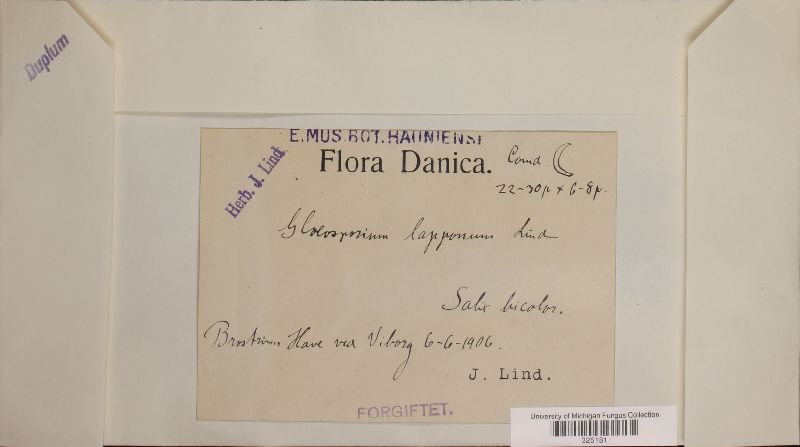 Duplum
E.MUS.BOT.HAUNIENSI
Herb. J. Lind
Flora Danica.
Conid
22-30µ × 6-8µ.
Gloeosporium lapponum Lind
Salix bicolor.
Brostrøms Have ved Viborg 6-6-1906.
J. Lind.
FORGIFTET.
University of Michigan Fungus Collection
225181